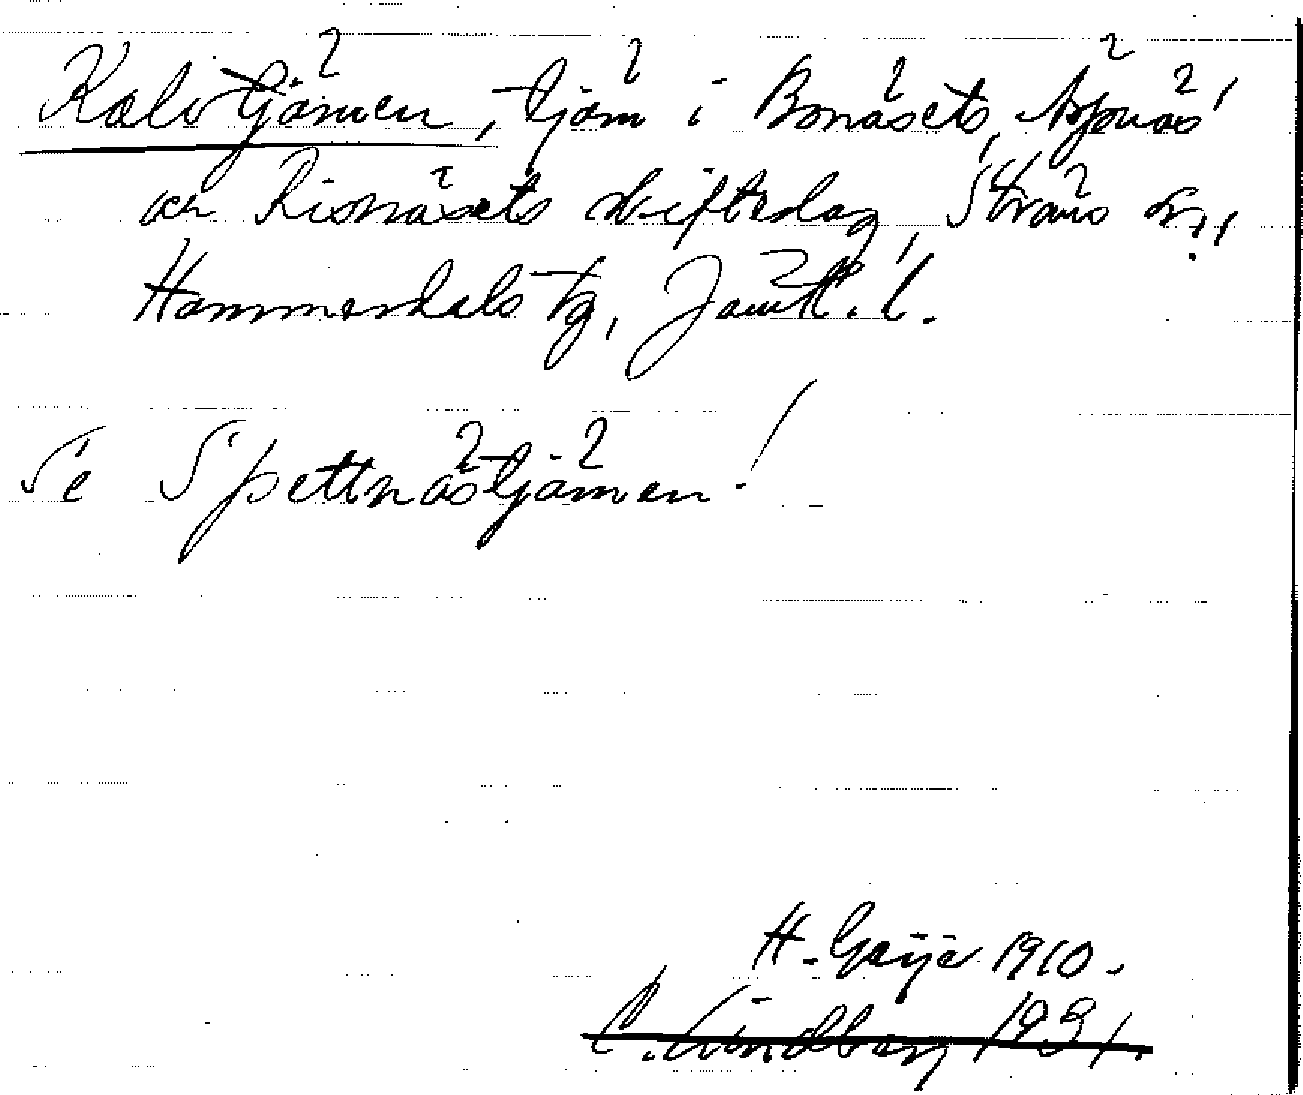 Kalvtjärnen, tjärn i Bonäsets, Aspnäs'
och Risnäsets skifteslag, Ströms sn.,
Hammerdals tg, Jämtl. l.
Se Spettnästjärnen!
H. Geijer 1910.
C. Lindberg 1931.